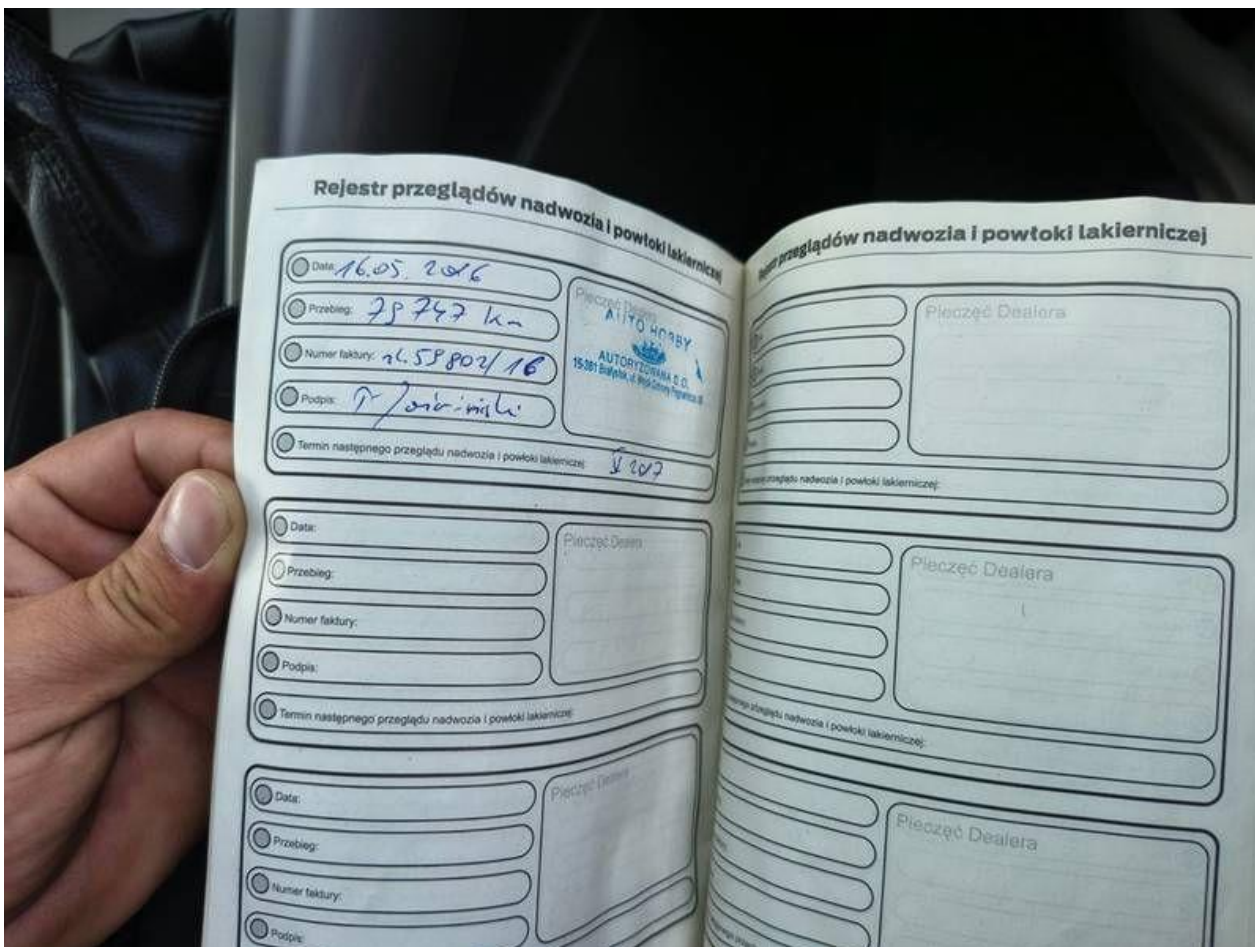 Rejestr przeglądów nadwozia i powłoki lakierniczej
Data: 16.05.2016
Przebieg: 79 747 km
Numer faktury: 59802/16
Podpis:
Pieczęć Dealera
AUTO HOBBY
AUTORYZOWANA S.O.
15-381 Białystok, ul.
Termin następnego przeglądu nadwozia i powłoki lakierniczej: V 2017
Data:
Przebieg:
Numer faktury:
Podpis:
Pieczęć Dealera
Termin następnego przeglądu nadwozia i powłoki lakierniczej:
Data:
Przebieg:
Numer faktury:
Podpis:
Pieczęć Dealera
przeglądów nadwozia i powłoki lakierniczej
Pieczęć Dealera
przeglądu nadwozia i powłoki lakierniczej:
Pieczęć Dealera
przeglądu nadwozia i powłoki lakierniczej:
Pieczęć Dealera